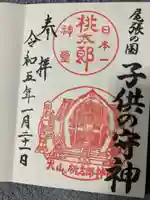 尾張の国
子供の守神
日本一
桃太郎
神霊
奉拝
令和五年一月二十一日
犬山 桃太郎神社